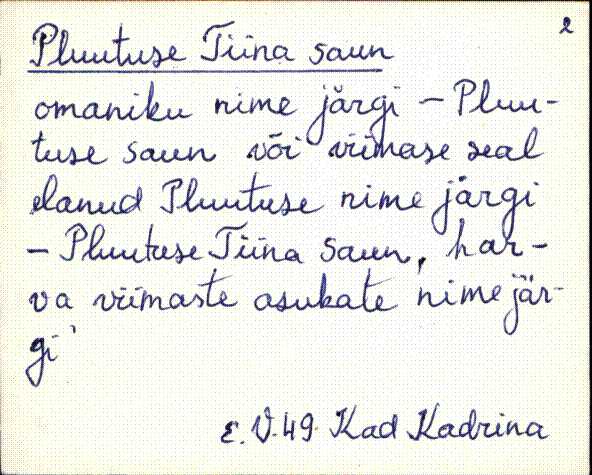 2
Pluutuse Tiina saun
omaniku nime järgi – Pluu-
tuse saun või viimase seal
elanud Pluutuse nime järgi
– Pluutuse Tiina saun, har-
va viimaste asukate nime jär-
gi'
E. V. 49. Kad Kadrina